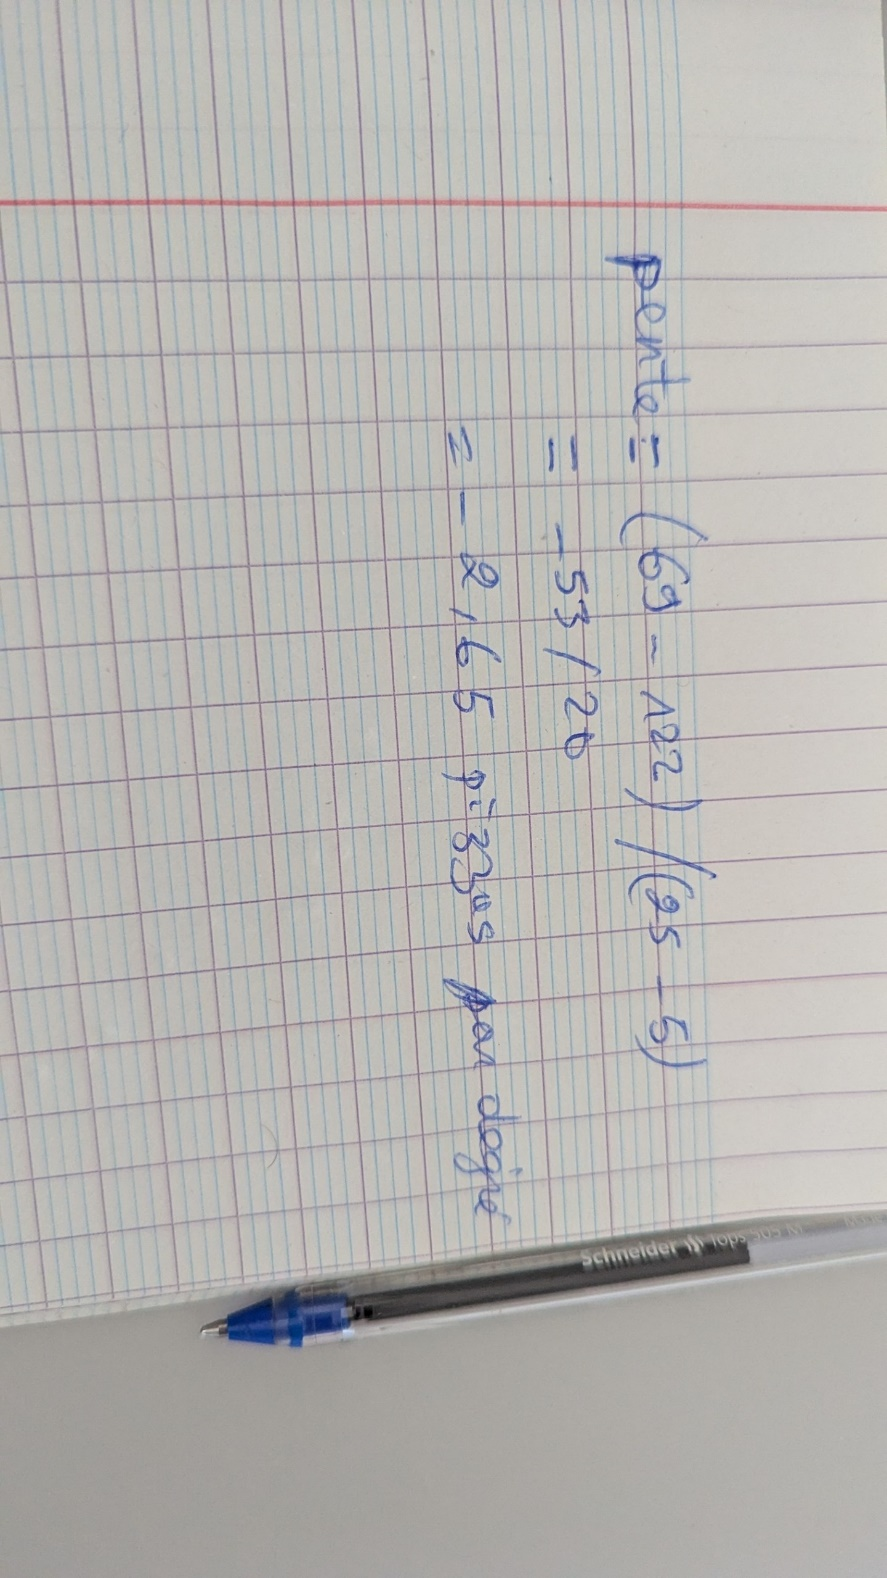 pente = (69 - 122) / (25 - 5)
= -53 / 20
= - 2,65 pizzas par degré
Schneider Tops 505 M